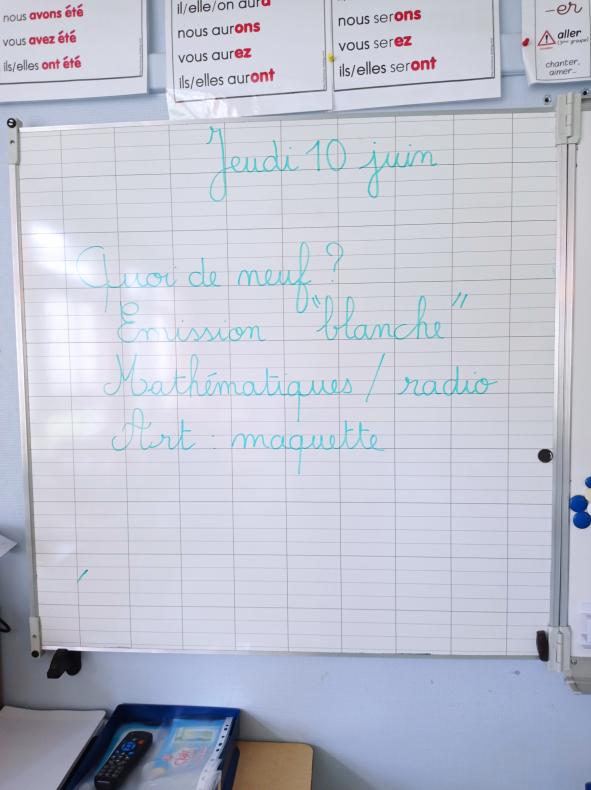 nous avons été
vous avez été
ils/elles ont été
il/elle/on aura
nous aurons
vous aurez
ils/elles auront
nous serons
vous serez
ils/elles seront
-er
aller
chanter,
aimer...
Jeudi 10 juin
Quoi de neuf ?
Emission "blanche"
Mathématiques / radio
Art : maquette